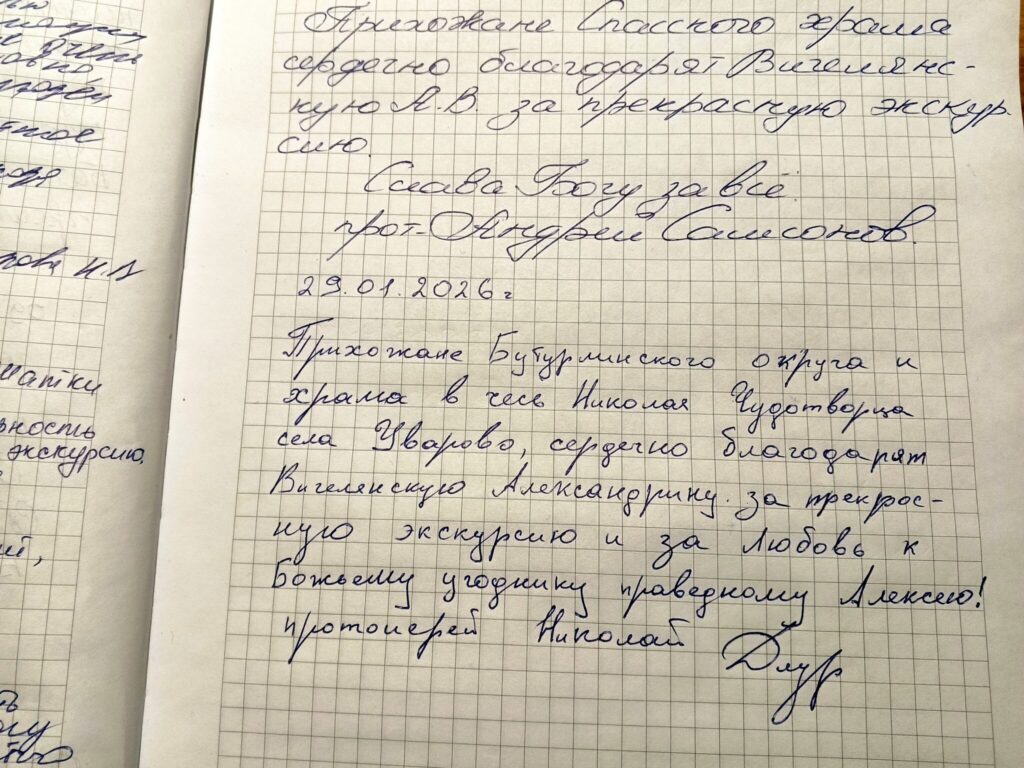 Прихожане Спасского храма
сердечно благодарят Вигелянс-
кую А.В. за прекрасную экскур.
сию.
Слава Богу за всё.
прот. Андрей Самсонов.
29.01.2026г
Прихожане Бутурлинского округа и
храма в чесь Николая Чудотворца
села Уварово, сердечно благодарят
Вигелянскую Александрину за прекрас-
ную экскурсию и за Любовь к
Божьему угоднику праведному Алексею!
протоиерей Николай
И.А
матки
экскурсию.